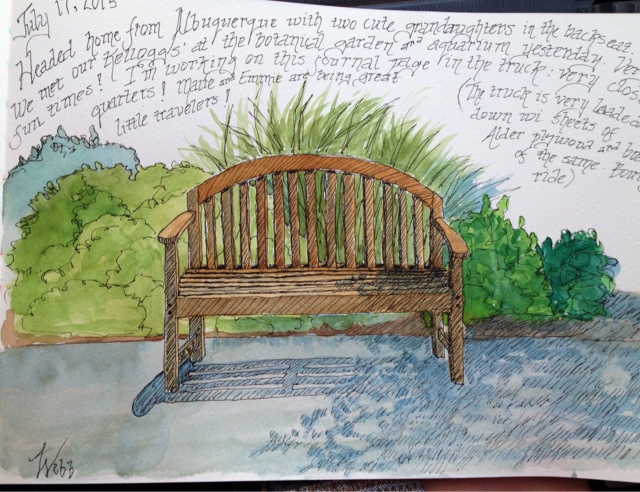 July 17, 2015
Headed home from Albuquerque with two cute grandaughters in the backseat.
We met our Kelloggs' at the botanical garden and aquarium yesterday. Very
Sun times! I'm working on this journal page in the truck: very close
quarters! Maite and Emmie are being great
little travelers!
(The truck is very loaded
down wi. sheets of
Alder plywood and
of the same.
ride)
Webb